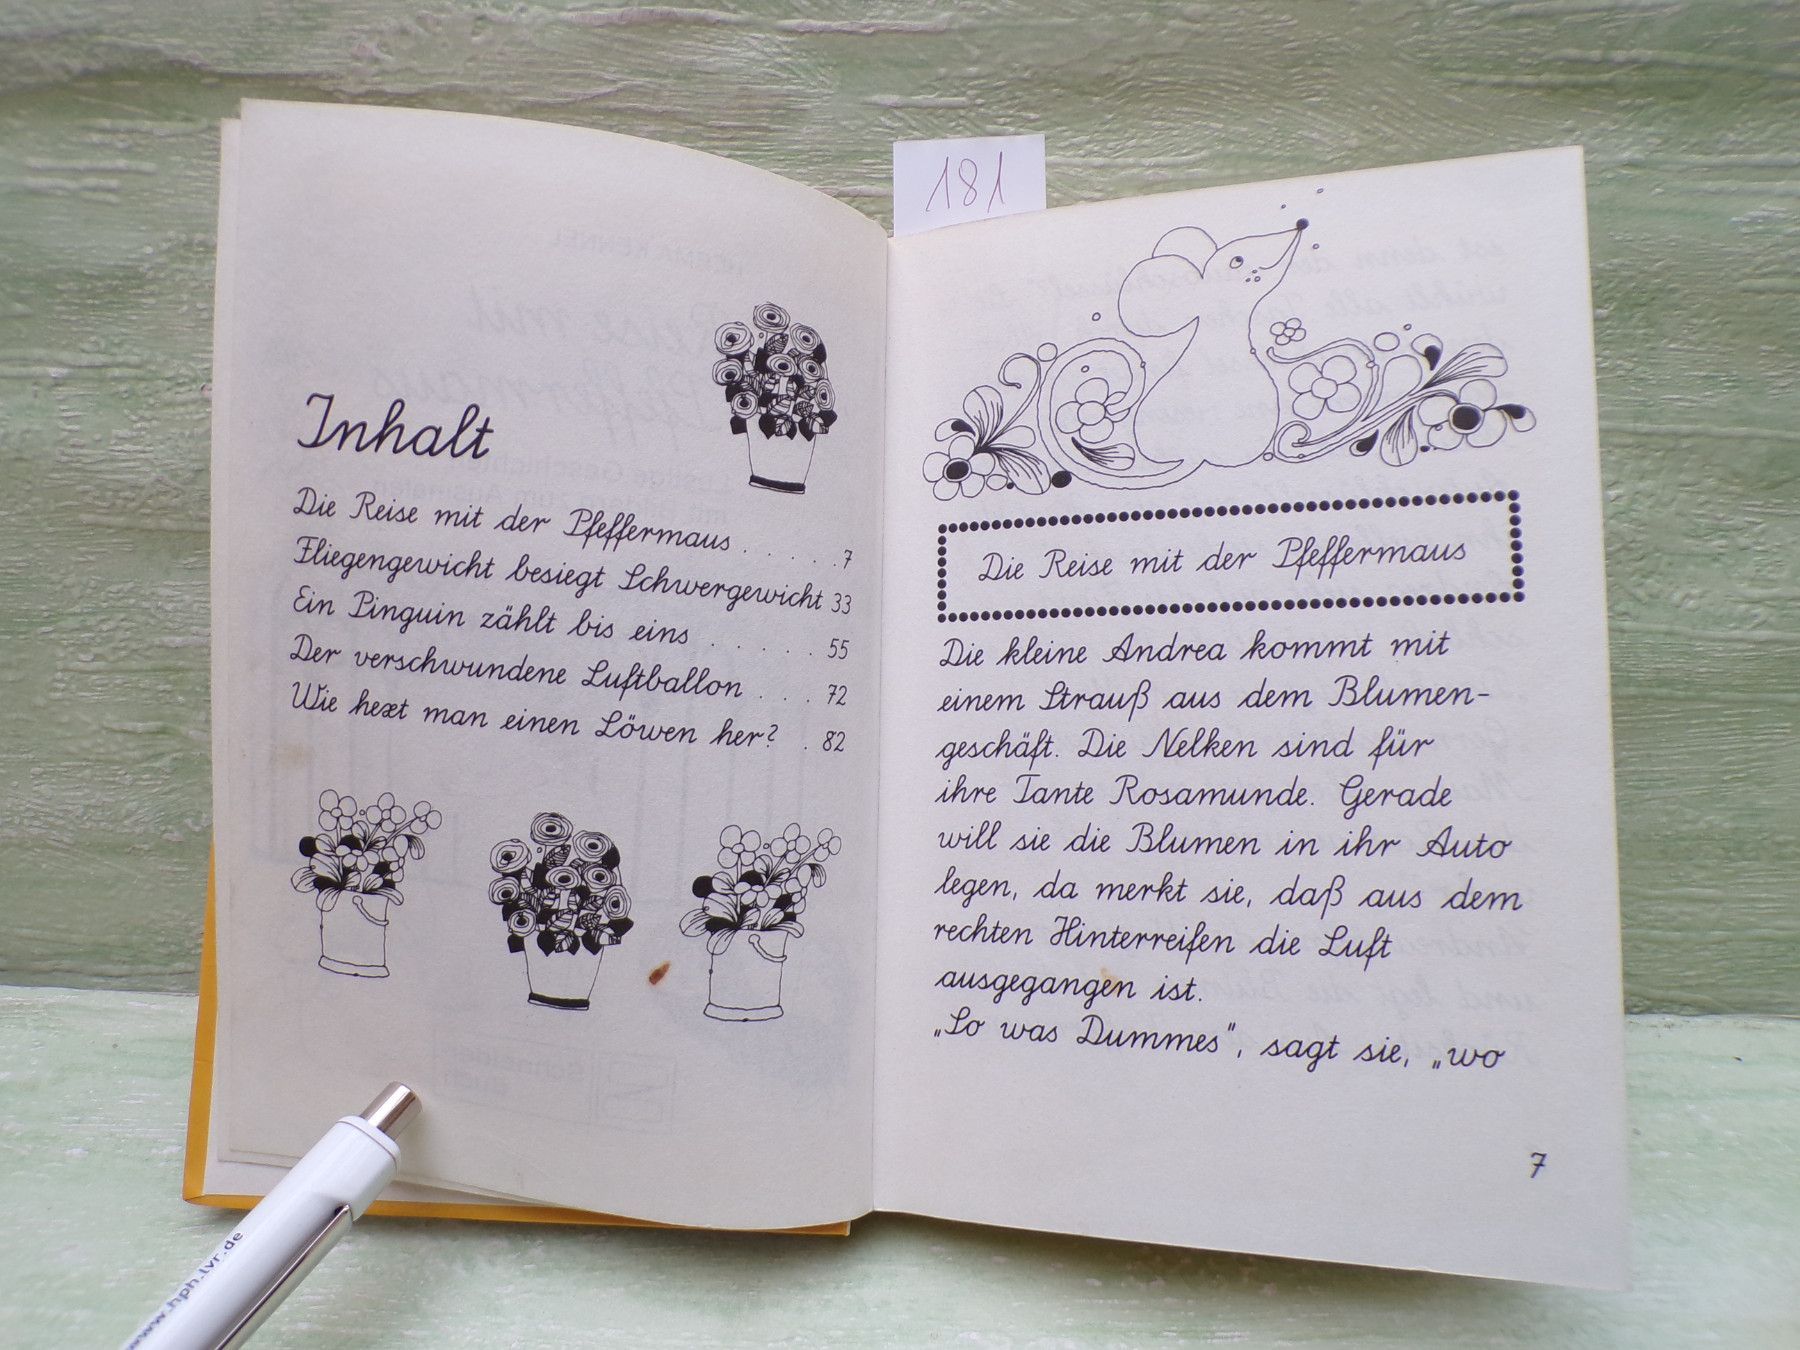 181
Inhalt
Die Reise mit der Pfeffermaus . . . . . 7
Fliegengewicht besiegt Schwergewicht 33
Ein Pinguin zählt bis eins . . . . . . 55
Der verschwundene Luftballon . . . 72
Wie hext man einen Löwen her? . 82
www.hph.lvr.de
Die Reise mit der Pfeffermaus
Die kleine Andrea kommt mit
einem Strauß aus dem Blumen-
geschäft. Die Nelken sind für
ihre Tante Rosamunde. Gerade
will sie die Blumen in ihr Auto
legen, da merkt sie, daß aus dem
rechten Hinterreifen die Luft
ausgegangen ist.
„So was Dummes", sagt sie, „wo
7